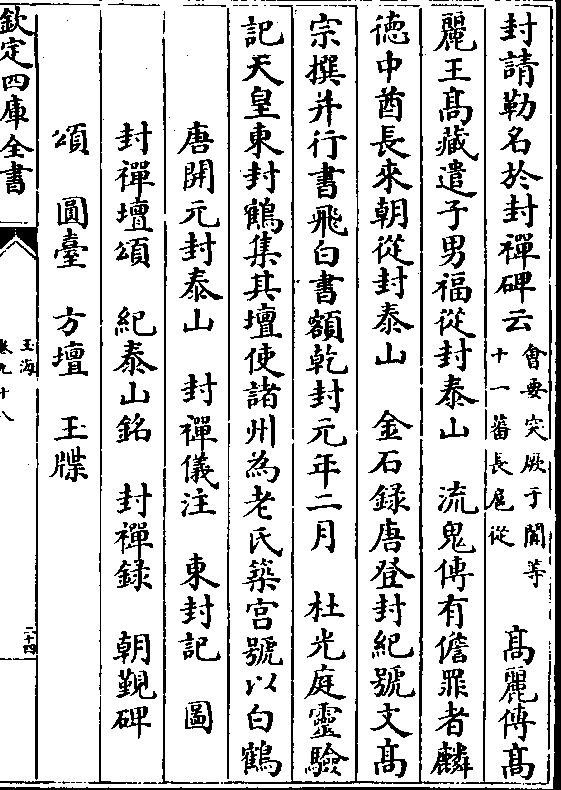 封請勒名於封禪碑云會要突厥于闐等十一蕃長扈從　髙麗傳髙
麗王髙藏遣子男福從封泰山　流鬼傳有儋罪者麟
徳中酋長來朝從封泰山　金石録唐登封紀號文髙
宗撰并行書飛白書額乾封元年二月　杜光庭靈驗
記天皇東封鶴集其壇使諸州為老氏築宫號以白鶴
唐開元封泰山　封禪儀注　東封記　圖
封禪壇頌　紀泰山銘　封禪録　朝覲碑
頌　圓臺　方壇　玉牒
欽定四庫全書
玉海
卷九十八
二十四